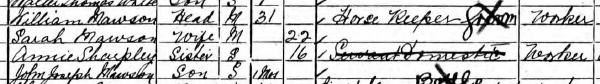 Walter Thomas White Son S 1
William Mawson Head M 31 / Horse Keeper Groom Worker
Sarah Mawson Wife M 22 /
Annie Sharpley Sister S 16 / Servant Domestic Worker
John Joseph Mawson Son S 1 Mos